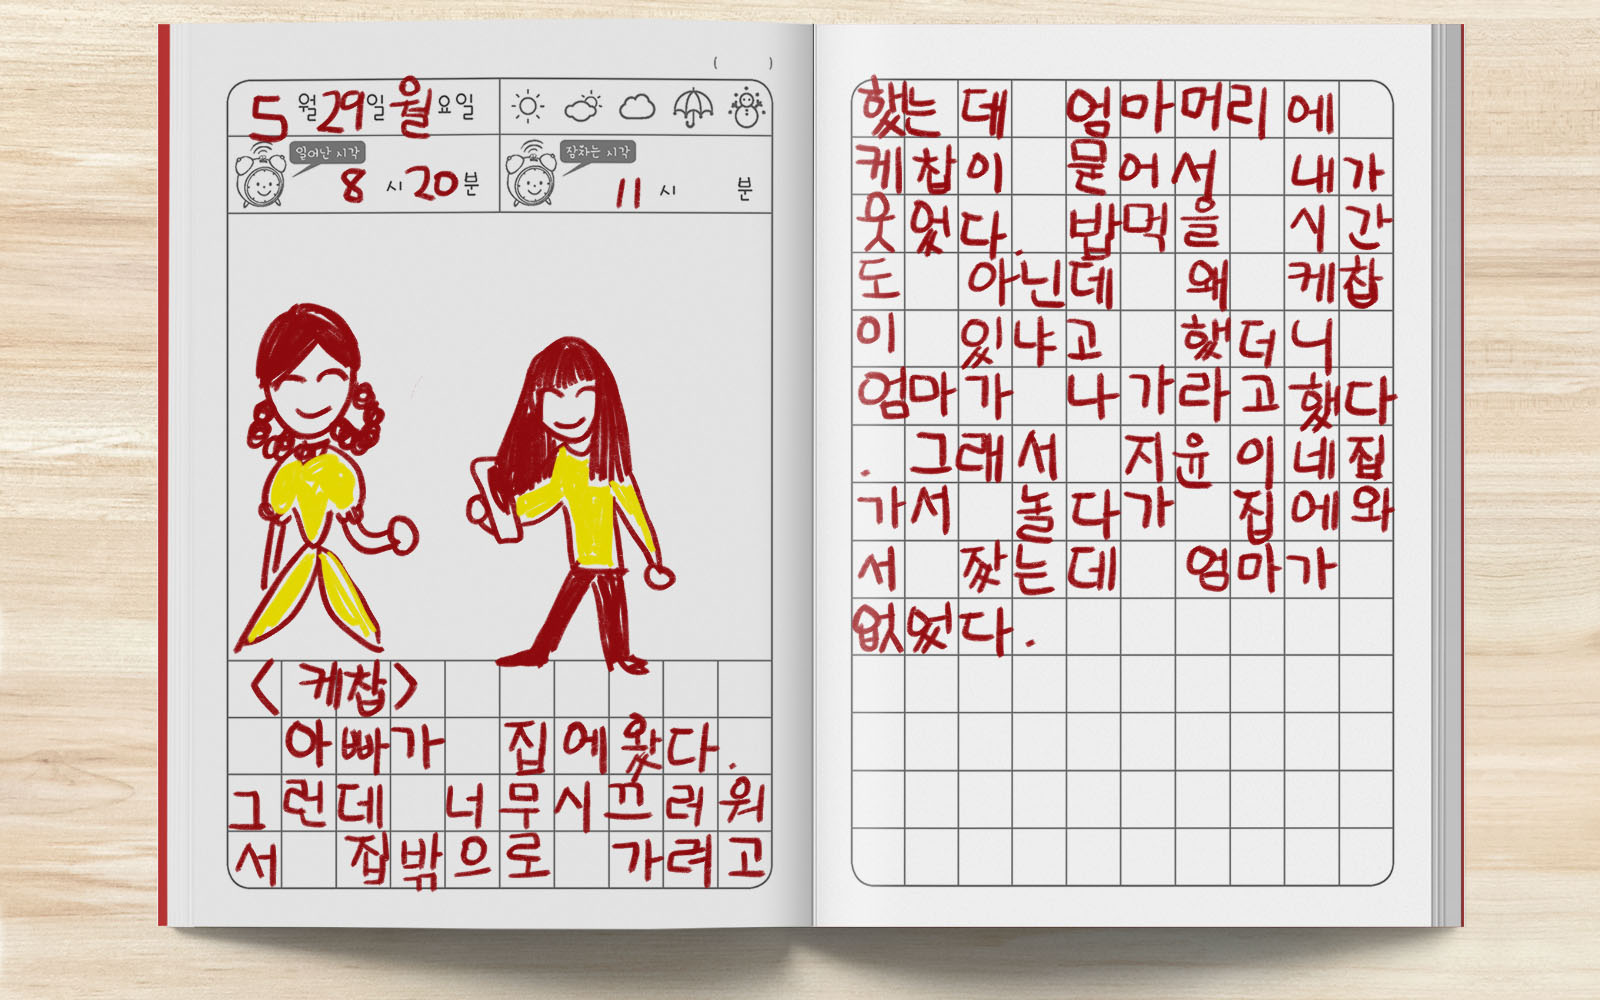 ( )
5 월 29 일 월 요일
일어난 시각
8 시 20 분
잠자는 시각
11 시 분
<케찹>
아빠가 집에왔다.
그런데 너무시끄러워
서 집밖으로 가려고
했는데 엄마머리에
케찹이 뭍어서 내가
웃었다. 밥먹을 시간
도 아닌데 왜 케찹
이 있냐고 했더니
엄마가 나가라고했다
. 그래서 지윤이네집
가서 놀다가 집에와
서 잤는데 엄마가
없었다.